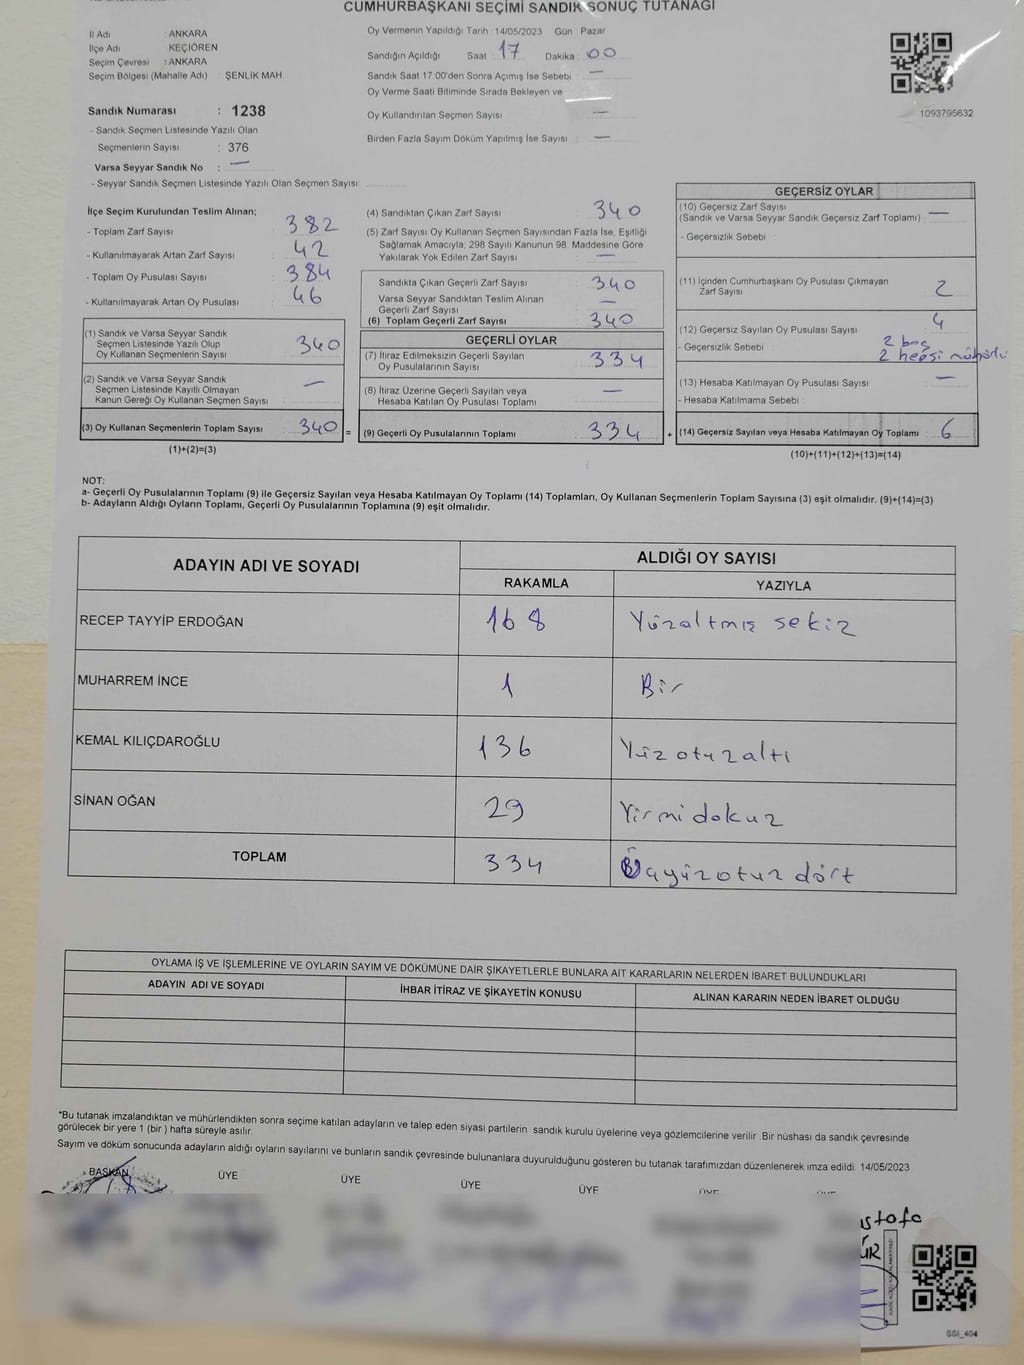 CUMHURBAŞKANI SEÇİMİ SANDIK SONUÇ TUTANAĞI
İl Adı : ANKARA
İlçe Adı KEÇİÖREN
Seçim Çevresi : ANKARA
Seçim Bölgesi (Mahalle Adı) : ŞENLİK MAH.
Sandık Numarası : 1238
- Sandık Seçmen Listesinde Yazılı Olan
Seçmenlerin Sayısı : 376
Varsa Seyyar Sandık No : —
- Seyyar Sandık Seçmen Listesinde Yazılı Olan Seçmen Sayısı:
Oy Vermenin Yapıldığı Tarih : 14/05/2023 Gün : Pazar
Sandığın Açıldığı Saat 17 Dakika 00
Sandık Saat 17:00'den Sonra Açımış İse Sebebi —
Oy Verme Saati Bitiminde Sırada Bekleyen ve
Oy Kullandırılan Seçmen Sayısı : —
Birden Fazla Sayım Döküm Yapılmış İse Sayısı : —
1093795632
İlçe Seçim Kurulundan Teslim Alınan;
- Toplam Zarf Sayısı : 382
- Kullanılmayarak Artan Zarf Sayısı : 42
- Toplam Oy Pusulası Sayısı : 384
- Kullanılmayarak Artan Oy Pusulası : 46
(1) Sandık ve Varsa Seyyar Sandık
Seçmen Listesinde Yazılı Olup
Oy Kullanan Seçmenlerin Sayısı : 340
(2) Sandık ve Varsa Seyyar Sandık
Seçmen Listesinde Kayıtlı Olmayan
Kanun Gereği Oy Kullanan Seçmen Sayısı : —
(3) Oy Kullanan Seçmenlerin Toplam Sayısı : 340 =
(1)+(2)=(3)
(4) Sandıktan Çıkan Zarf Sayısı : 340
(5) Zarf Sayısı Oy Kullanan Seçmen Sayısından Fazla İse, Eşitliği
Sağlamak Amacıyla; 298 Sayılı Kanunun 98. Maddesine Göre
Yakılarak Yok Edilen Zarf Sayısı : —
Sandıkta Çıkan Geçerli Zarf Sayısı : 340
Varsa Seyyar Sandıktan Teslim Alınan
Geçerli Zarf Sayısı : —
(6) Toplam Geçerli Zarf Sayısı : 340
GEÇERLİ OYLAR
(7) İtiraz Edilmeksizin Geçerli Sayılan
Oy Pusulalarının Sayısı : 334
(8) İtiraz Üzerine Geçerli Sayılan veya
Hesaba Katılan Oy Pusulası Toplamı : —
(9) Geçerli Oy Pusulalarının Toplamı : 334 +
GEÇERSİZ OYLAR
(10) Geçersiz Zarf Sayısı
(Sandık ve Varsa Seyyar Sandık Geçersiz Zarf Toplamı) : —
- Geçersizlik Sebebi :
(11) İçinden Cumhurbaşkanı Oy Pusulası Çıkmayan
Zarf Sayısı : 2
(12) Geçersiz Sayılan Oy Pusulası Sayısı : 4
- Geçersizlik Sebebi : 2 boş
2 hepsi mühürlü
(13) Hesaba Katılmayan Oy Pusulası Sayısı : —
- Hesaba Katılmama Sebebi :
(14) Geçersiz Sayılan veya Hesaba Katılmayan Oy Toplamı : 6
(10)+(11)+(12)+(13)=(14)
NOT:
a- Geçerli Oy Pusulalarının Toplamı (9) ile Geçersiz Sayılan veya Hesaba Katılmayan Oy Toplamı (14) Toplamları, Oy Kullanan Seçmenlerin Toplam Sayısına (3) eşit olmalıdır. (9)+(14)=(3)
b- Adayların Aldığı Oyların Toplamı, Geçerli Oy Pusulalarının Toplamına (9) eşit olmalıdır.
ADAYIN ADI VE SOYADI ALDIĞI OY SAYISI
RAKAMLA YAZIYLA
RECEP TAYYİP ERDOĞAN 168 Yüzaltmış sekiz
MUHARREM İNCE 1 Bir
KEMAL KILIÇDAROĞLU 136 Yüzotuzaltı
SİNAN OĞAN 29 Yirmidokuz
TOPLAM 334 Üçyüzotuz dört
OYLAMA İŞ VE İŞLEMLERİNE VE OYLARIN SAYIM VE DÖKÜMÜNE DAİR ŞİKAYETLERLE BUNLARA AİT KARARLARIN NELERDEN İBARET BULUNDUKLARI
ADAYIN ADI VE SOYADI İHBAR İTİRAZ VE ŞİKAYETİN KONUSU ALINAN KARARIN NEDEN İBARET OLDUĞU
*Bu tutanak imzalandıktan ve mühürlendikten sonra seçime katılan adayların ve talep eden siyasi partilerin sandık kurulu üyelerine veya gözlemcilerine verilir. Bir nüshası da sandık çevresinde
görülecek bir yere 1 (bir ) hafta süreyle asılır.
Sayım ve döküm sonucunda adayların aldığı oyların sayılarını ve bunların sandık çevresinde bulunanlara duyurulduğunu gösteren bu tutanak tarafımızdan düzenlenerek imza edildi. 14/05/2023
BAŞKAN ÜYE ÜYE ÜYE ÜYE ÜYE ÜYE
SSI_404